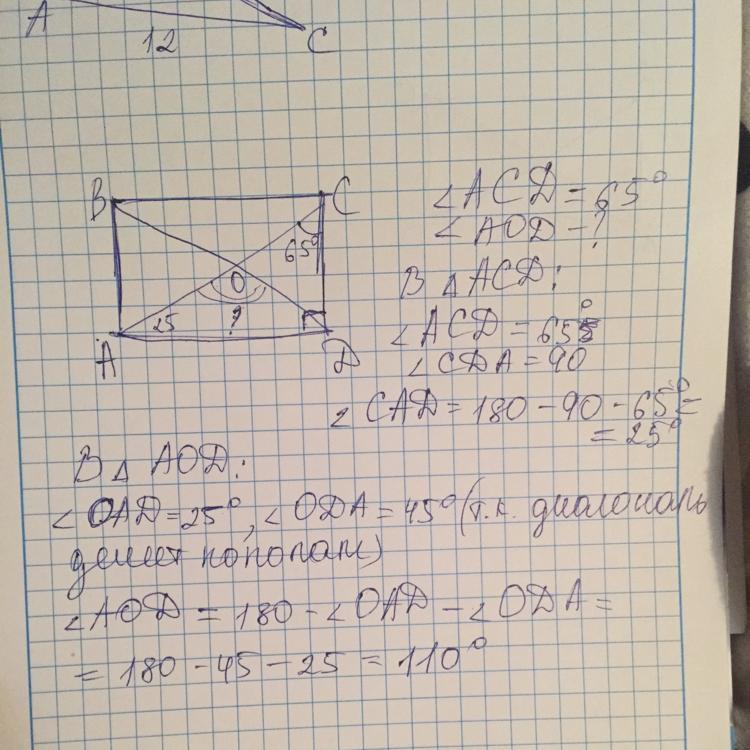 A
12
C
B
C
65°
O
25
?
A
D
∠ACD = 65°
∠AOD - ?
В △ ACD:
∠ACD = 65°
∠CDA = 90
∠CAD = 180 - 90 - 65° =
= 25°
В △ AOD:
∠OAD = 25°, ∠ODA = 45° (т.к. диагональ
делет пополам)
∠AOD = 180 - ∠OAD - ∠ODA =
= 180 - 45 - 25 = 110°